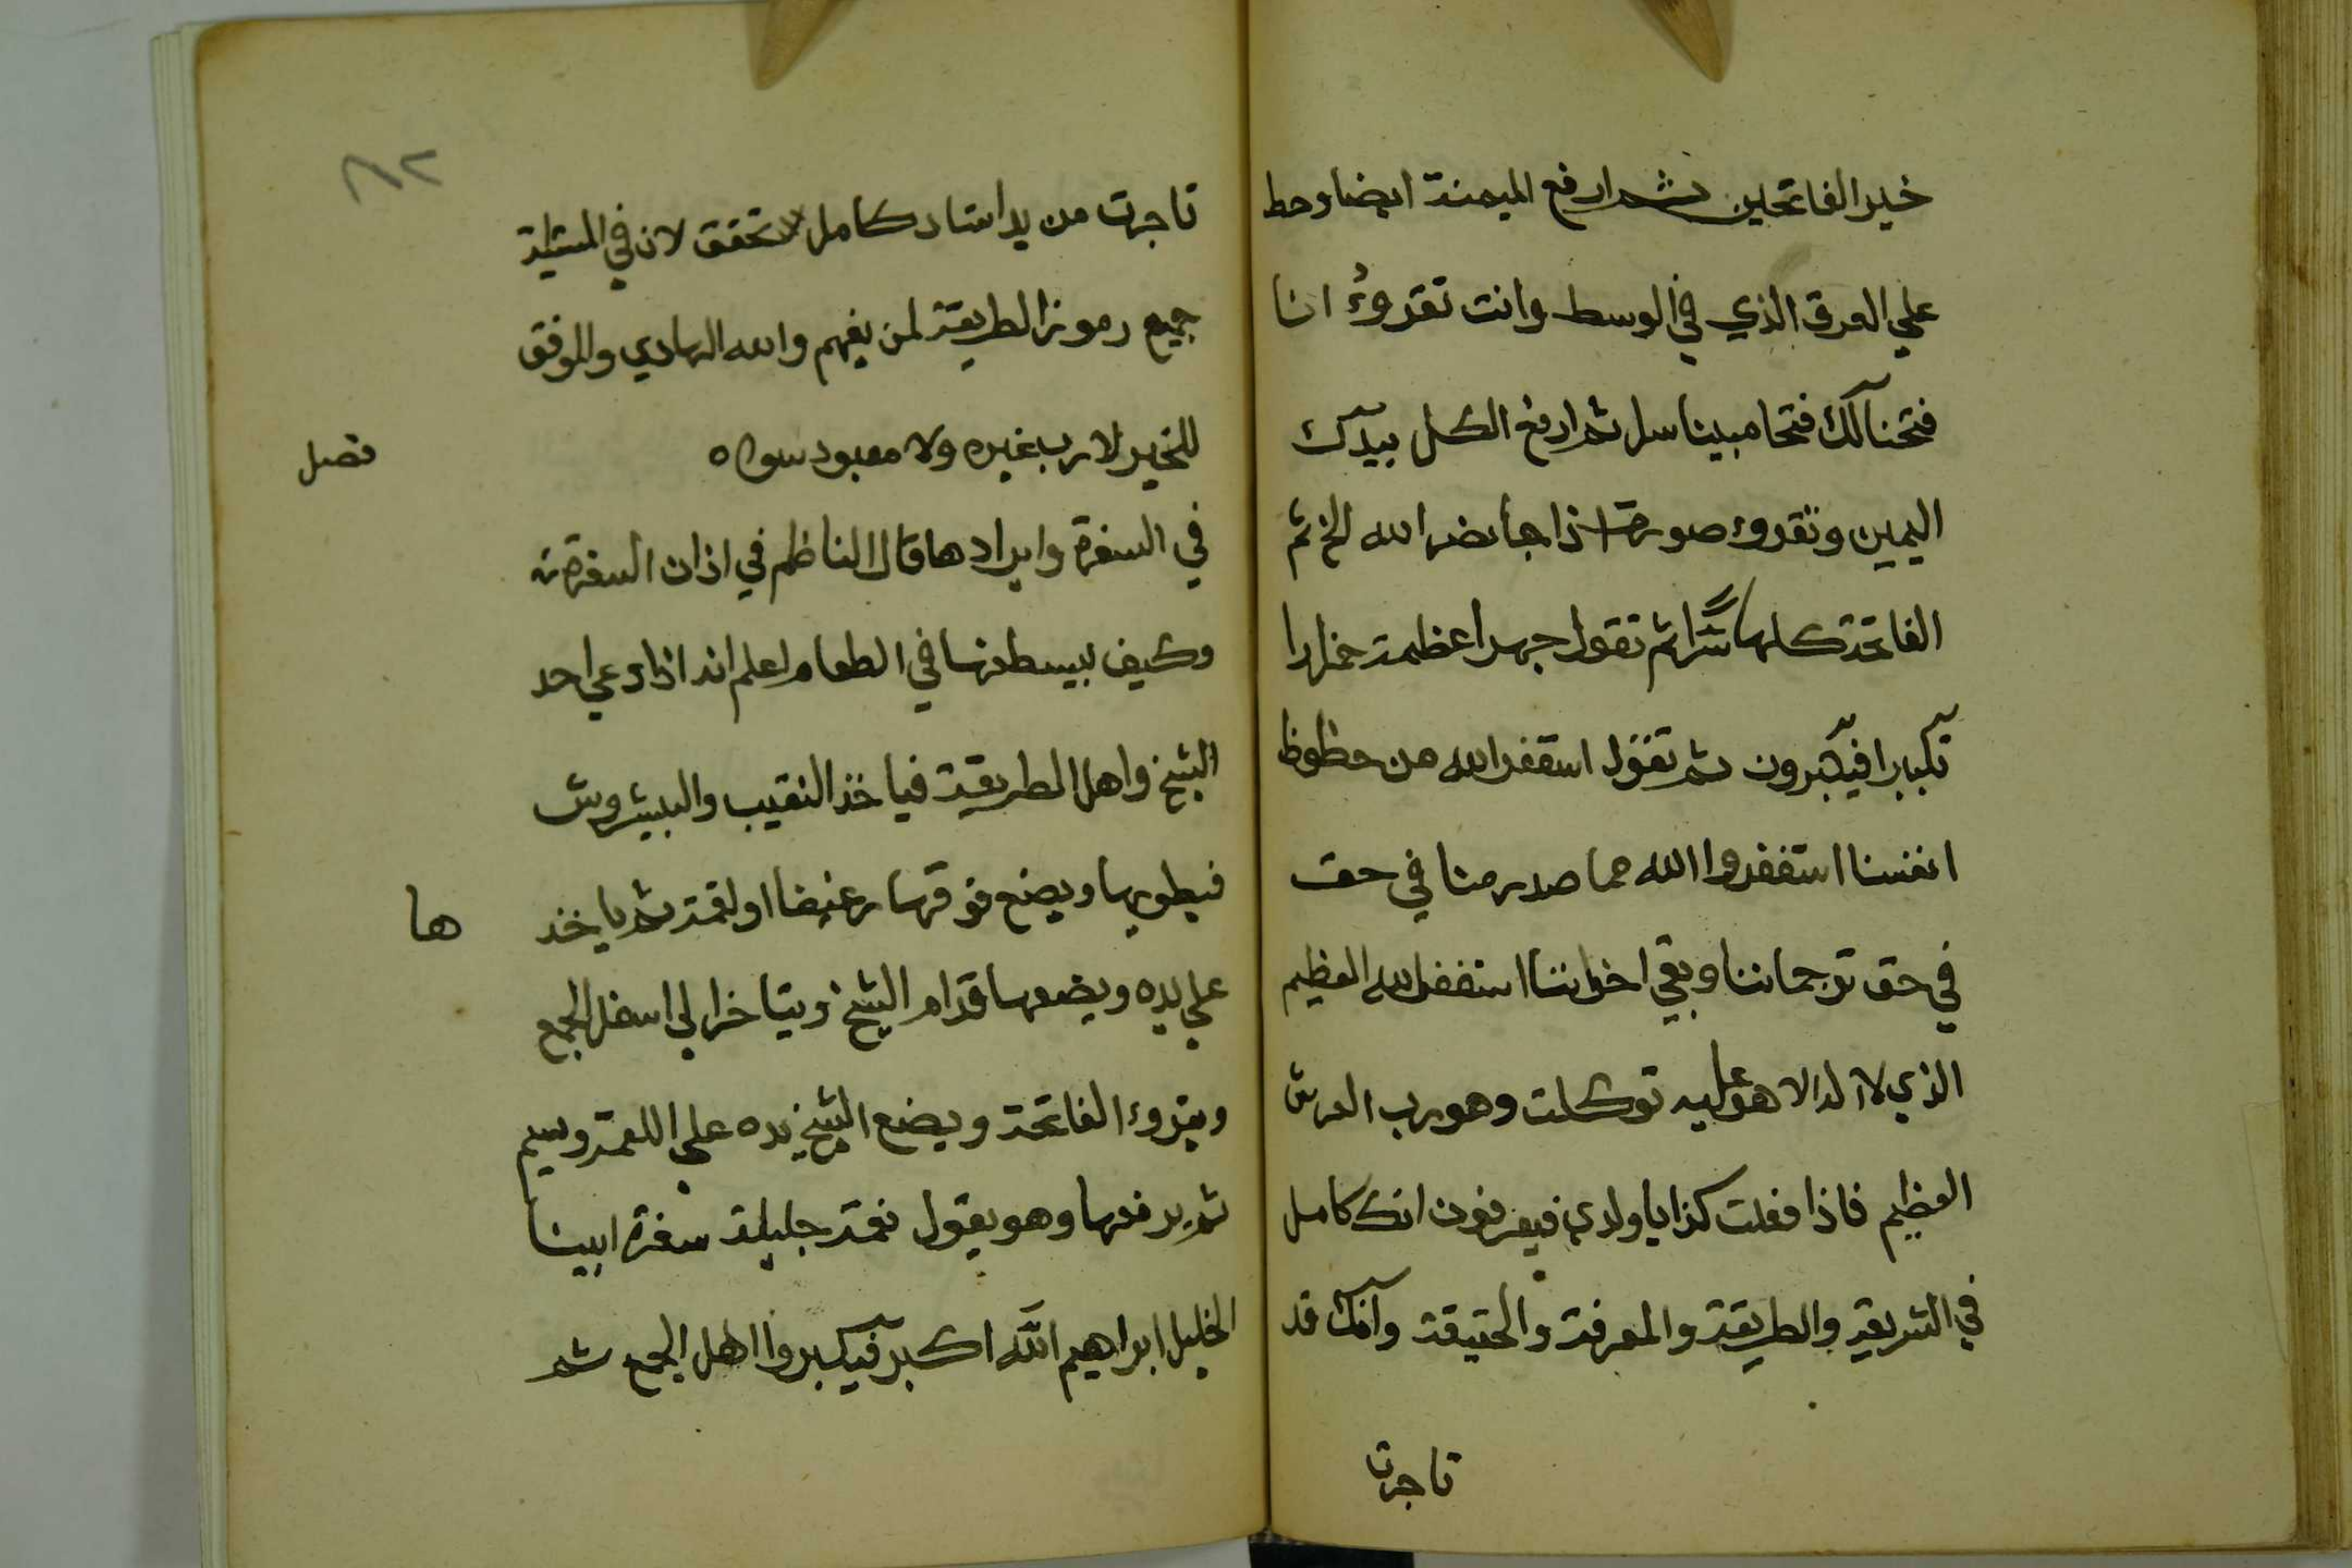 خير الفاتحين ثم ارفع الميمنة ايضا وحط
علي العرق الذي في الوسط وانت تقروءُ انا
فتحنا لك فتحا مبينا سل ثم ارفع الكل بيدك
اليمين وتقروء صورة اذا جا نصر الله الخ ثم
الفاتحة كلها سرًّا ثم تقول جهرا عظمة
تكبيرا فيكبرون ثم تقول استغفر الله من حظوظ
انفسنا استغفروا الله مما صدر منا في حق
في حق ترجماننا وبقي اخواننا استغفر الله العظيم
الذي لا اله الا هو عليه توكلت وهو رب العرش
العظيم فاذا فعلت كذا يا ولدي فيعرفون انك كامل
في الشريعة والطريقة والمعرفة والحقيقة وانك قد
تاجرت
٨٢
تاجرت من يد استاد كامل لا تحقق لان في
جميع رموز الطريقة لمن يفهم والله الهادي والموفق
للخير لا رب غيره ولا معبود سواه
فصل
في السفرة وايرادها قال الناظم في اذان السفرة
وكيف يبسطونها في الطعام اعلم انه اذا دعي احد
الشيخ واهل الطريقة فياخذ النقيب والبيشروش
فيطويها ويضع فوقها رغيفا او لقمة ثم ياخذ
ها
علي يده ويضعها قدام الشيخ ويتاخر الي اسفل الجمع
ويقروء الفاتحة ويضع الشيخ يده علي اللقمة ويسم
ثم يرفعها وهو يقول نعمة جليلة سفرة ابينا
الخليل ابراهيم الله اكبر فيكبروا اهل الجمع ثم